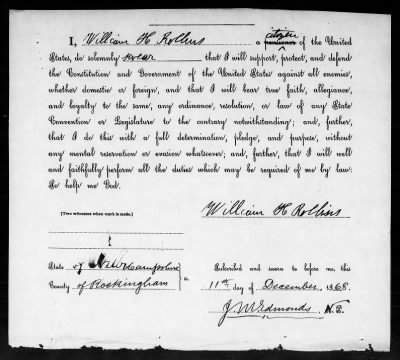 I, William H Rollins a citizen of the United
States, do solemnly swear that I will support, protect, and defend
the Constitution and Government of the United States against all enemies,
whether domestic or foreign, and that I will bear true faith, allegiance,
and loyalty to the same, any ordinance, resolution, or law of any State
Convention or Legislature to the contrary notwithstanding; and, further,
that I do this with a full determination, pledge, and purpose, without
any mental reservation or evasion whatsoever; and, further, that I will well
and faithfully perform all the duties which may be required of me by law:
So help me God.
[Two witnesses when mark is made.]
William H Rollins
State of New Hampshire
County of Rockingham } ss.
Subscribed and sworn to before me, this
11th day of December, 1868.
J M Edmonds